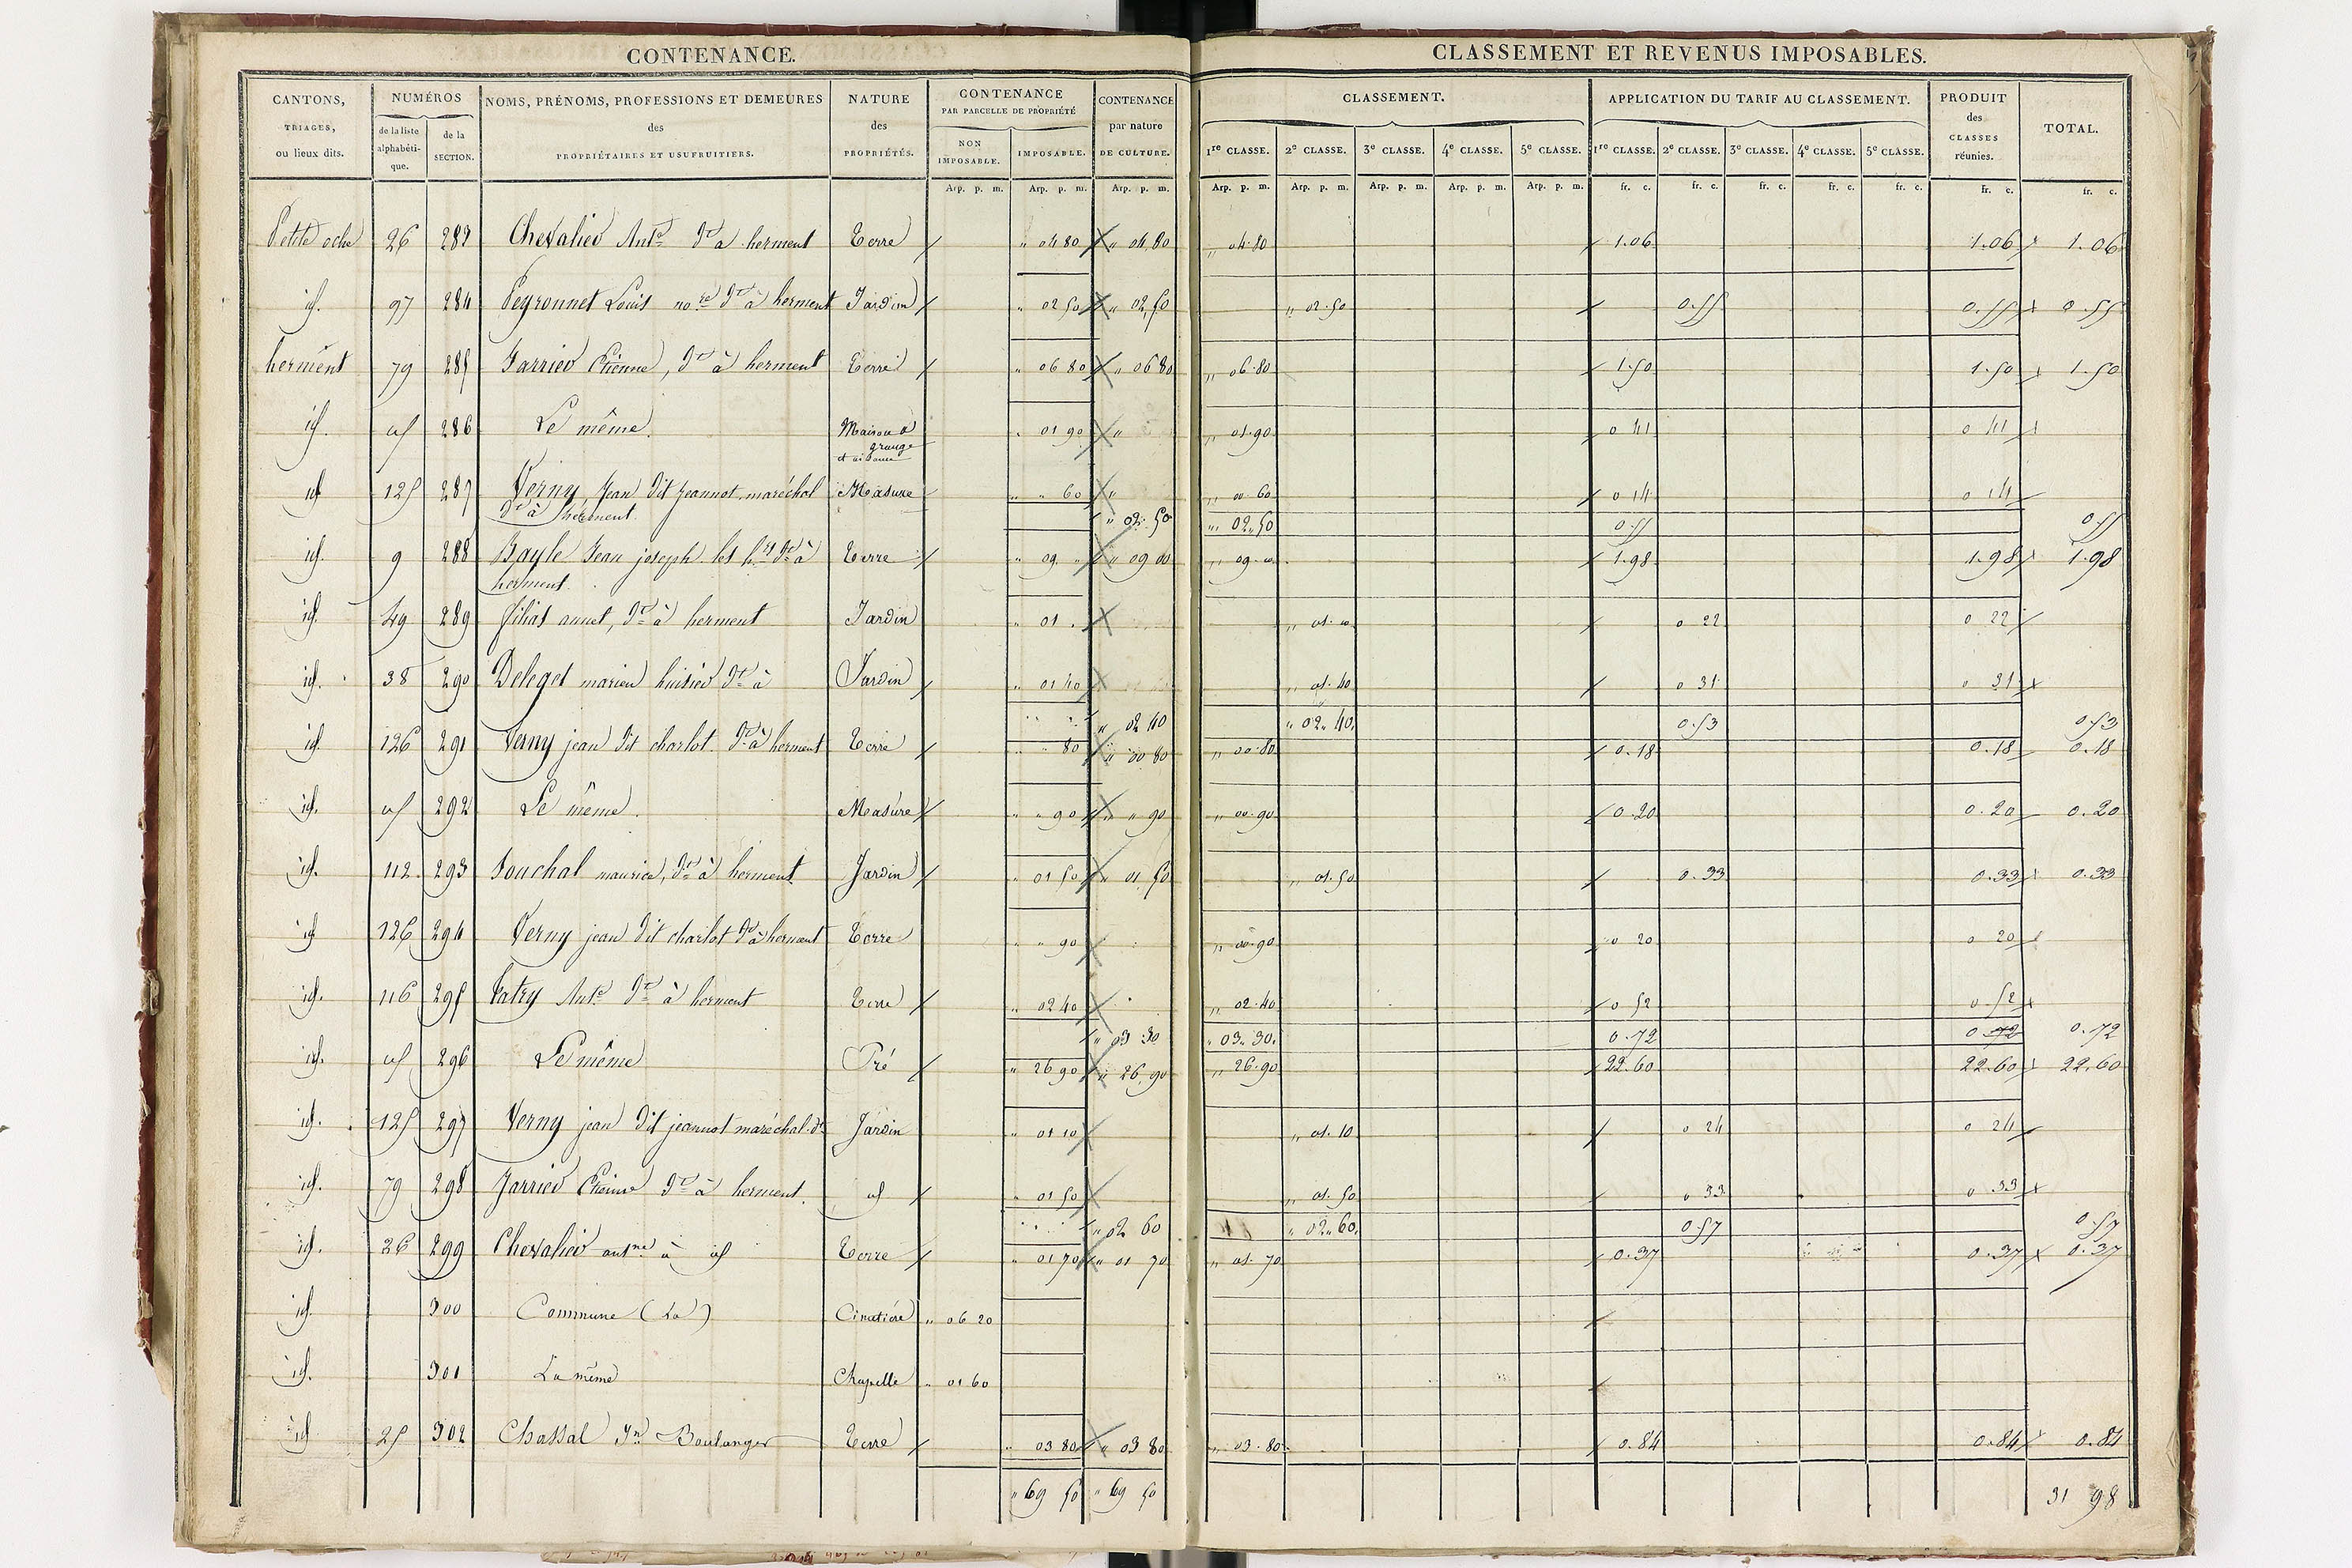 CONTENANCE.
CLASSEMENT ET REVENUS IMPOSABLES.
CANTONS, TRIAGES, ou lieux dits.
NUMÉROS
de la liste alphabéti-que.
de la SECTION.
NOMS, PRÉNOMS, PROFESSIONS ET DEMEURES des PROPRIÉTAIRES ET USUFRUITIERS.
NATURE des PROPRIÉTÉS.
CONTENANCE PAR PARCELLE DE PROPRIÉTÉ
NON IMPOSABLE.
IMPOSABLE.
CONTENANCE par nature DE CULTURE.
CLASSEMENT.
1re CLASSE. 2e CLASSE. 3e CLASSE. 4e CLASSE. 5e CLASSE.
APPLICATION DU TARIF AU CLASSEMENT.
1re CLASSE. 2e CLASSE. 3e CLASSE. 4e CLASSE. 5e CLASSE.
PRODUIT des CLASSES réunies.
TOTAL.
Arp. p. m. Arp. p. m. Arp. p. m. Arp. p. m. Arp. p. m. Arp. p. m. Arp. p. m. Arp. p. m. fr. c. fr. c. fr. c. fr. c. fr. c. fr. c. fr. c.
Petite oche 26 283 Chevalier Ant.e d.t à herment Terre " 04 80 " 04 80 " 04.80 1.06 1.06 1.06
id. 97 284 Peyronnet Louis no.re d.t à herment Jardin " 02 50 " 02,50 " 02.50 0.55 0.55 0.55
herment 79 285 Jarrier Etienne, d.t à herment Terre " 06 80 " 06 80 " 06.80 1.50 1.50 1.50
id. id 286 Le même. Maison à grange et aisance " 01 90 " " 01.90 0 41 0 41
id 125 287 Verny, Jean dit Jeannot, maréchal Masure " " 60 " " 00 60 0 14 0 14
d.t à herment. " 02. 50 " 02.50 0.55 0.55
id. 9 288 Bayle Jean joseph les h.rs d.t à Terre " 09 " " 09 00 " 09.00 1.98 1.98 1.98
herment.
id. 49 289 filias annet, d.t à herment Jardin " 01 . " 01.00 0 22 0 22
id. 38 290 Deleget marien huisier d.t à Jardin " 01 40 " 01.40 0 31 0 31
" 02 40 " 02.40. 0.53 0.53
id. 126 291 Verny jean dit charlot d.t à herment Terre " " 80 " 00 80 " 00.80 0.18 0.18 0.18
id. id 292 Le même. Masure " " 90 " " 90 " 00.90 0.20 0.20 0.20
id. 112. 293 Souchal maurice, d.t à herment. Jardin " 01 50 " 01,50 " 01.50 0.33 0.33 0.33
id 126 294 Verny jean dit charlot d.t à herment Terre " " 90 " 00.90 0 20 0 20
id. 116 295 Tatry Ant.e d.t à herment Terre " 02 40 " 02.40 0 52 0 52
" 03 30 " 03.30. 0.72 0.72 0.72
id. id 296 Le même Pré " 26 90 " 26,90 " 26.90 22.60 22.60 22.60
id. 125 297 Verny jean dit jeannot maréchal d.t Jardin " 01 10 " 01.10 0 24 0 24
id. 79 298 Jarrier Etienne d.t à herment. id " 01 50 " 01.50 0 33 0 33
" 02 60 " 02.60. 0.57 0.57
id. 26 299 Chevalier ant.ne à id Terre " 01 70 " 01 70 " 01.70 0.37 0.37 0.37
id. 300 Commune (La) Cimatière " 06 20
id. 301 La même Chapelle " 01 60
id 25 302 Chassal J.n Boulanger Terre " 03 80 " 03 80 " 03.80 0.84 0.84 0.84
" 69 50 " 69 50 31 98